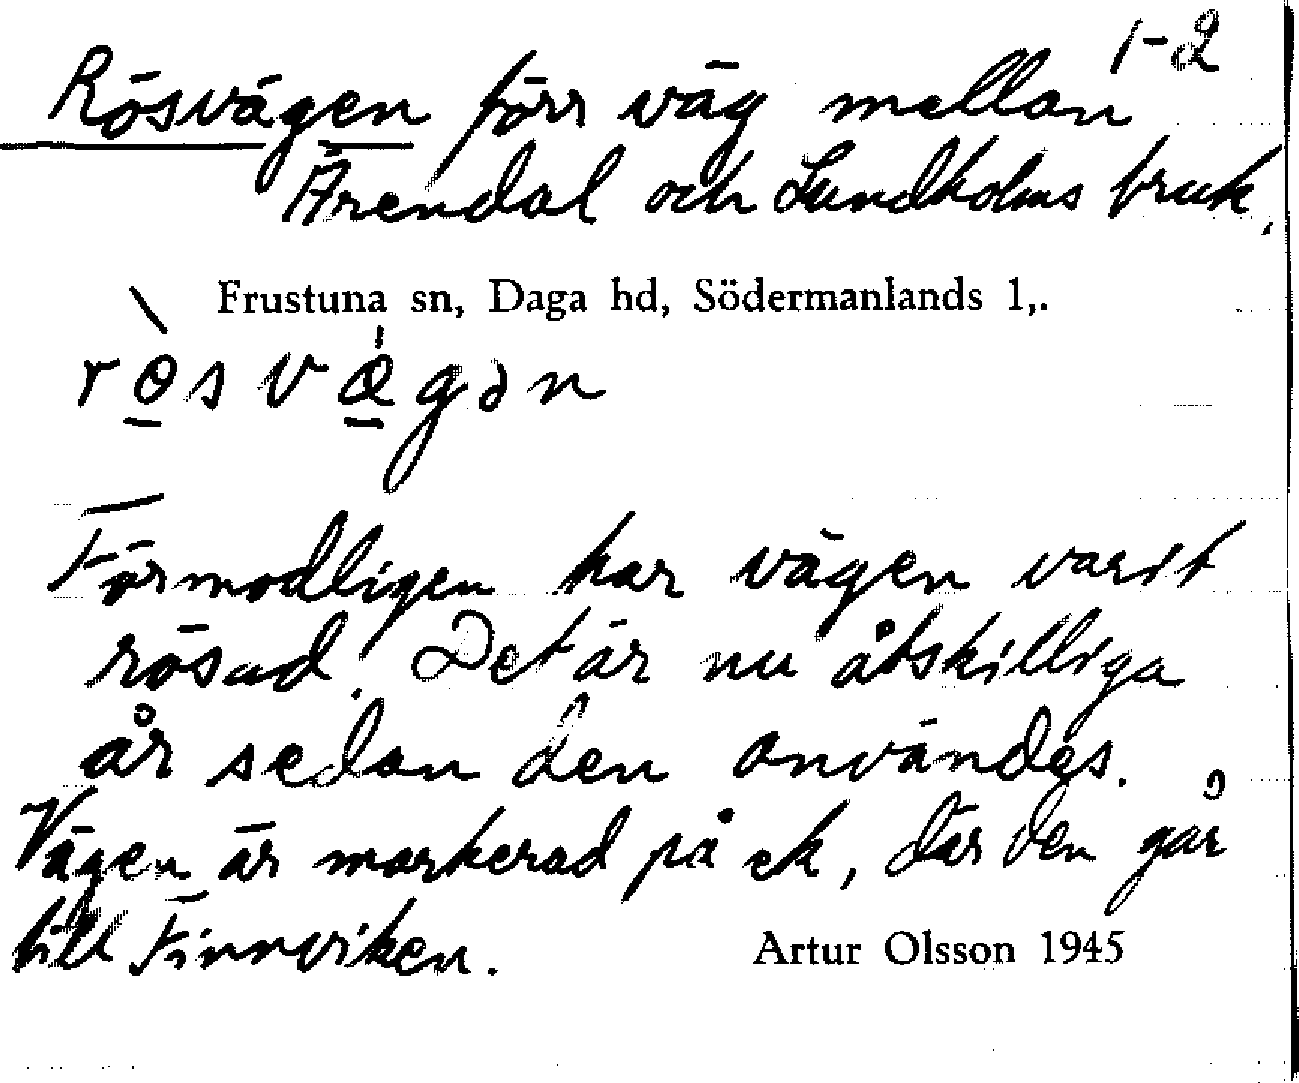 1-2
Rösvägen förr väg mellan
Ärendal och Lundholms bruk.
Frustuna sn, Daga hd, Södermanlands l,.
rɵ̀svǽgən
Förmodligen har vägen varit
rösad. Det är nu åtskilliga
år sedan den användes.
Vägen är markerad på ek, där den går
till Finnviken.
Artur Olsson 1945